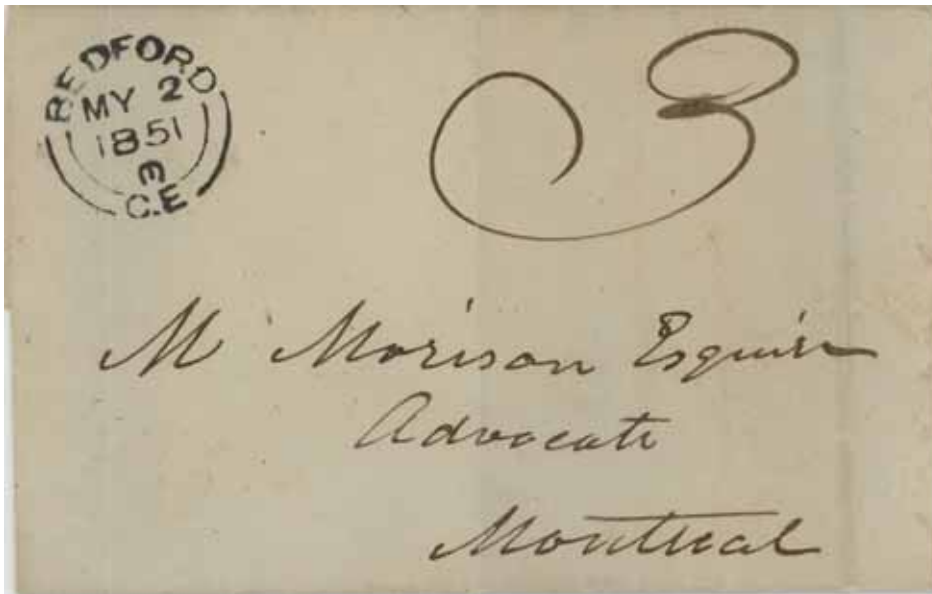 BEDFORD
MY 2
1851
C.E
3
M Morison Esquire
Advocate
Montreal